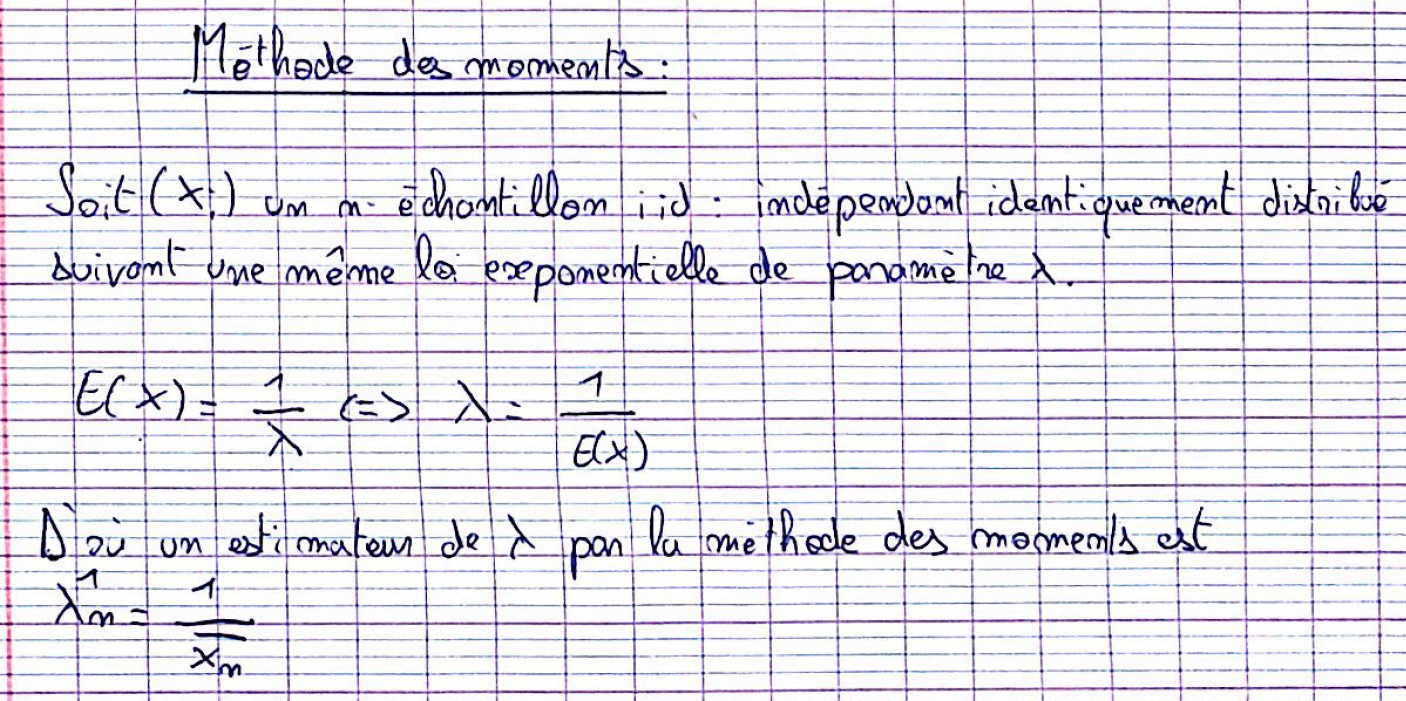 Méthode des moments :
Soit (Xi) un n-échantillon iid : indépendant identiquement distribué
suivant une même loi exponentielle de paramètre λ.
E(X) = 1/λ <=> λ = 1/E(X)
D'où un estimateur de λ par la méthode des moments est
λ̂n = 1/X̄n